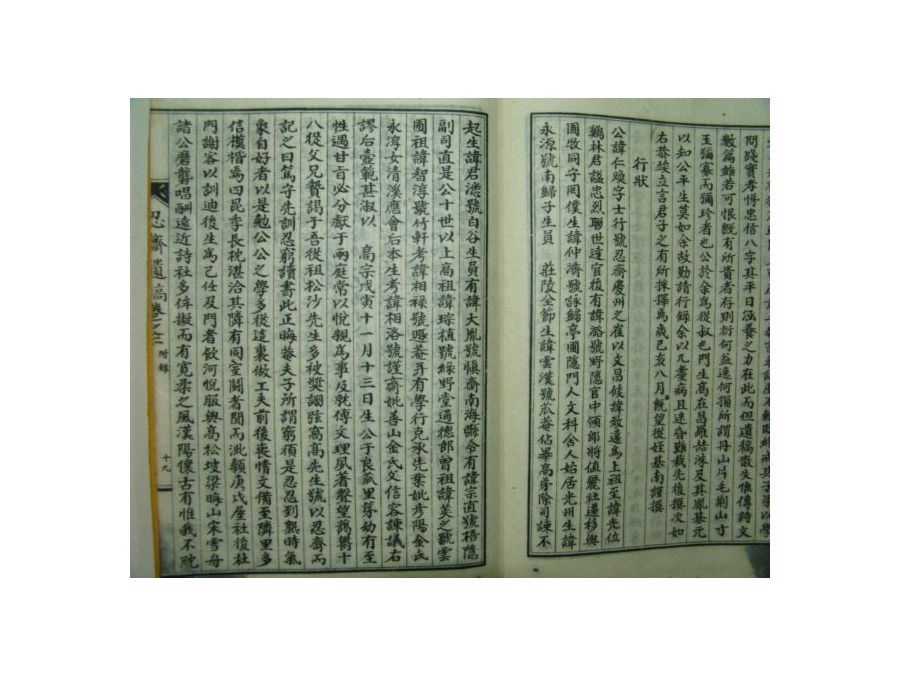 問踐實孝悌忠信八字其平日涵養之力在此而但遺稿散失惟傳詩文
數篇雖若可恨旣有所貴者存則何益連何損所謂丹山片毛荊山寸
玉彌寡而彌珍者也公於余爲從叔也門生高在昌羅喆洙及其胤基元
以知公平生莫如余故勤請行錄余以九耋病且迷昏雖栽先後撰次如
右恭竢立言君子之有所採擇焉歲己亥八月旣望從姪基南謹撰
行狀
公諱仁煥字士行號忍齋慶州之崔以文昌候諱致遠爲上祖至諱光位
鷄林君謚忠烈聯世達官後有諱潞號野隱官中領郎將値麗社遷移與
圃牧同守罔僕生諱仲濟號詠歸亭圃隱門人文科舍人始居光州生諱
永源號南歸子生員 莊陵全節生諱雲漢號瓜菴佔畢高弟除司諫不
起生諱君
號白谷生員有諱大胤號愼齋南海縣令有諱宗直號梧隱
副司直是公十世以上高祖諱琮植號綠野堂通德郎曾祖諱英之號雲
圃祖諱智淳號竹軒考諱相祿號遯菴并有學行克承先業妣彦陽金氏
永淳女淸溪應會后本生考諱相洛號謹齋妣善山金氏文信客諫議右
謬后壼範甚淑以 高宗戊寅十一月十三日生公于良瓜里芽幼有至
性遇甘旨必分獻于兩庭常以悅親爲事及就傅文理夙著聲望藹欝十
八從父兄贄謁于吾從祖松沙先生多被奬詡弦窩高先生號以忍齋而
記之曰篤守先訓忍窮讀書此正晦菴夫子所謂窮須是忍忍到熟時氣
象自好者以是勉公公之學多從這裏做工夫前後喪情文備至隣里多
信模楷焉四昆季長枕湛洽其隣有同室鬪者聞而泚顙庚戌屋社後杜
門謝客以訓迪後生爲己任及門者飮河悅服與高松坡梁晦山宋雪舟
諸公磨礱唱酬遠近詩社多侔擬而有寬柔之風漢陽懷古有惟我不晩
忍齋遺稿卷之三 附錄 十九